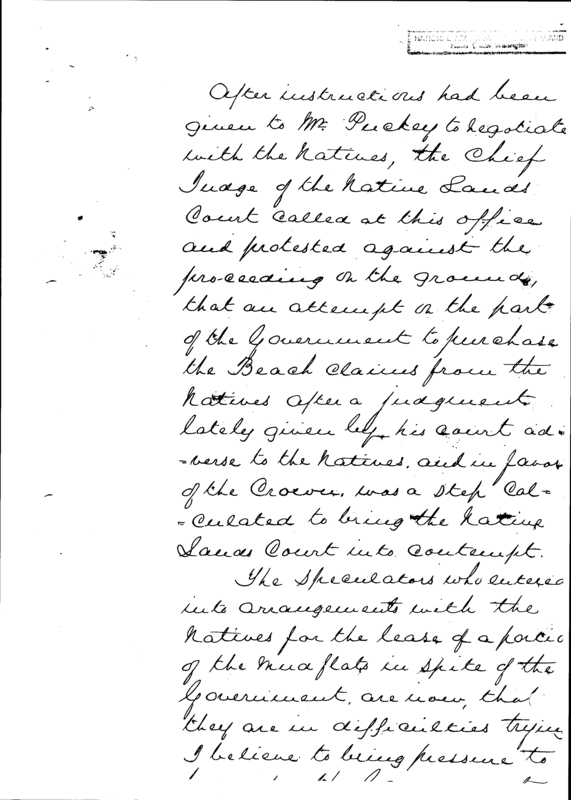 After instructions had been
given to Mr Puckey to negotiate
with the Natives, the Chief
Judge of the Native Lands
Court called at this office
and protested against the
proceeding on the ground,
that an attempt on the part
of the Government to purchase
the Beach claims from the
Natives after a judgment
lately given by his court ad=
=verse to the Natives, and in favor
of the Crown, was a step Cal=
=culated to bring the Native
Lands Court into contempt.
The Speculators who entered
into arrangements with the
Natives for the lease of a portio
of the Mud flats in spite of the
Government, are now, that
they are in difficulties tryin
I believe to bring pressure to